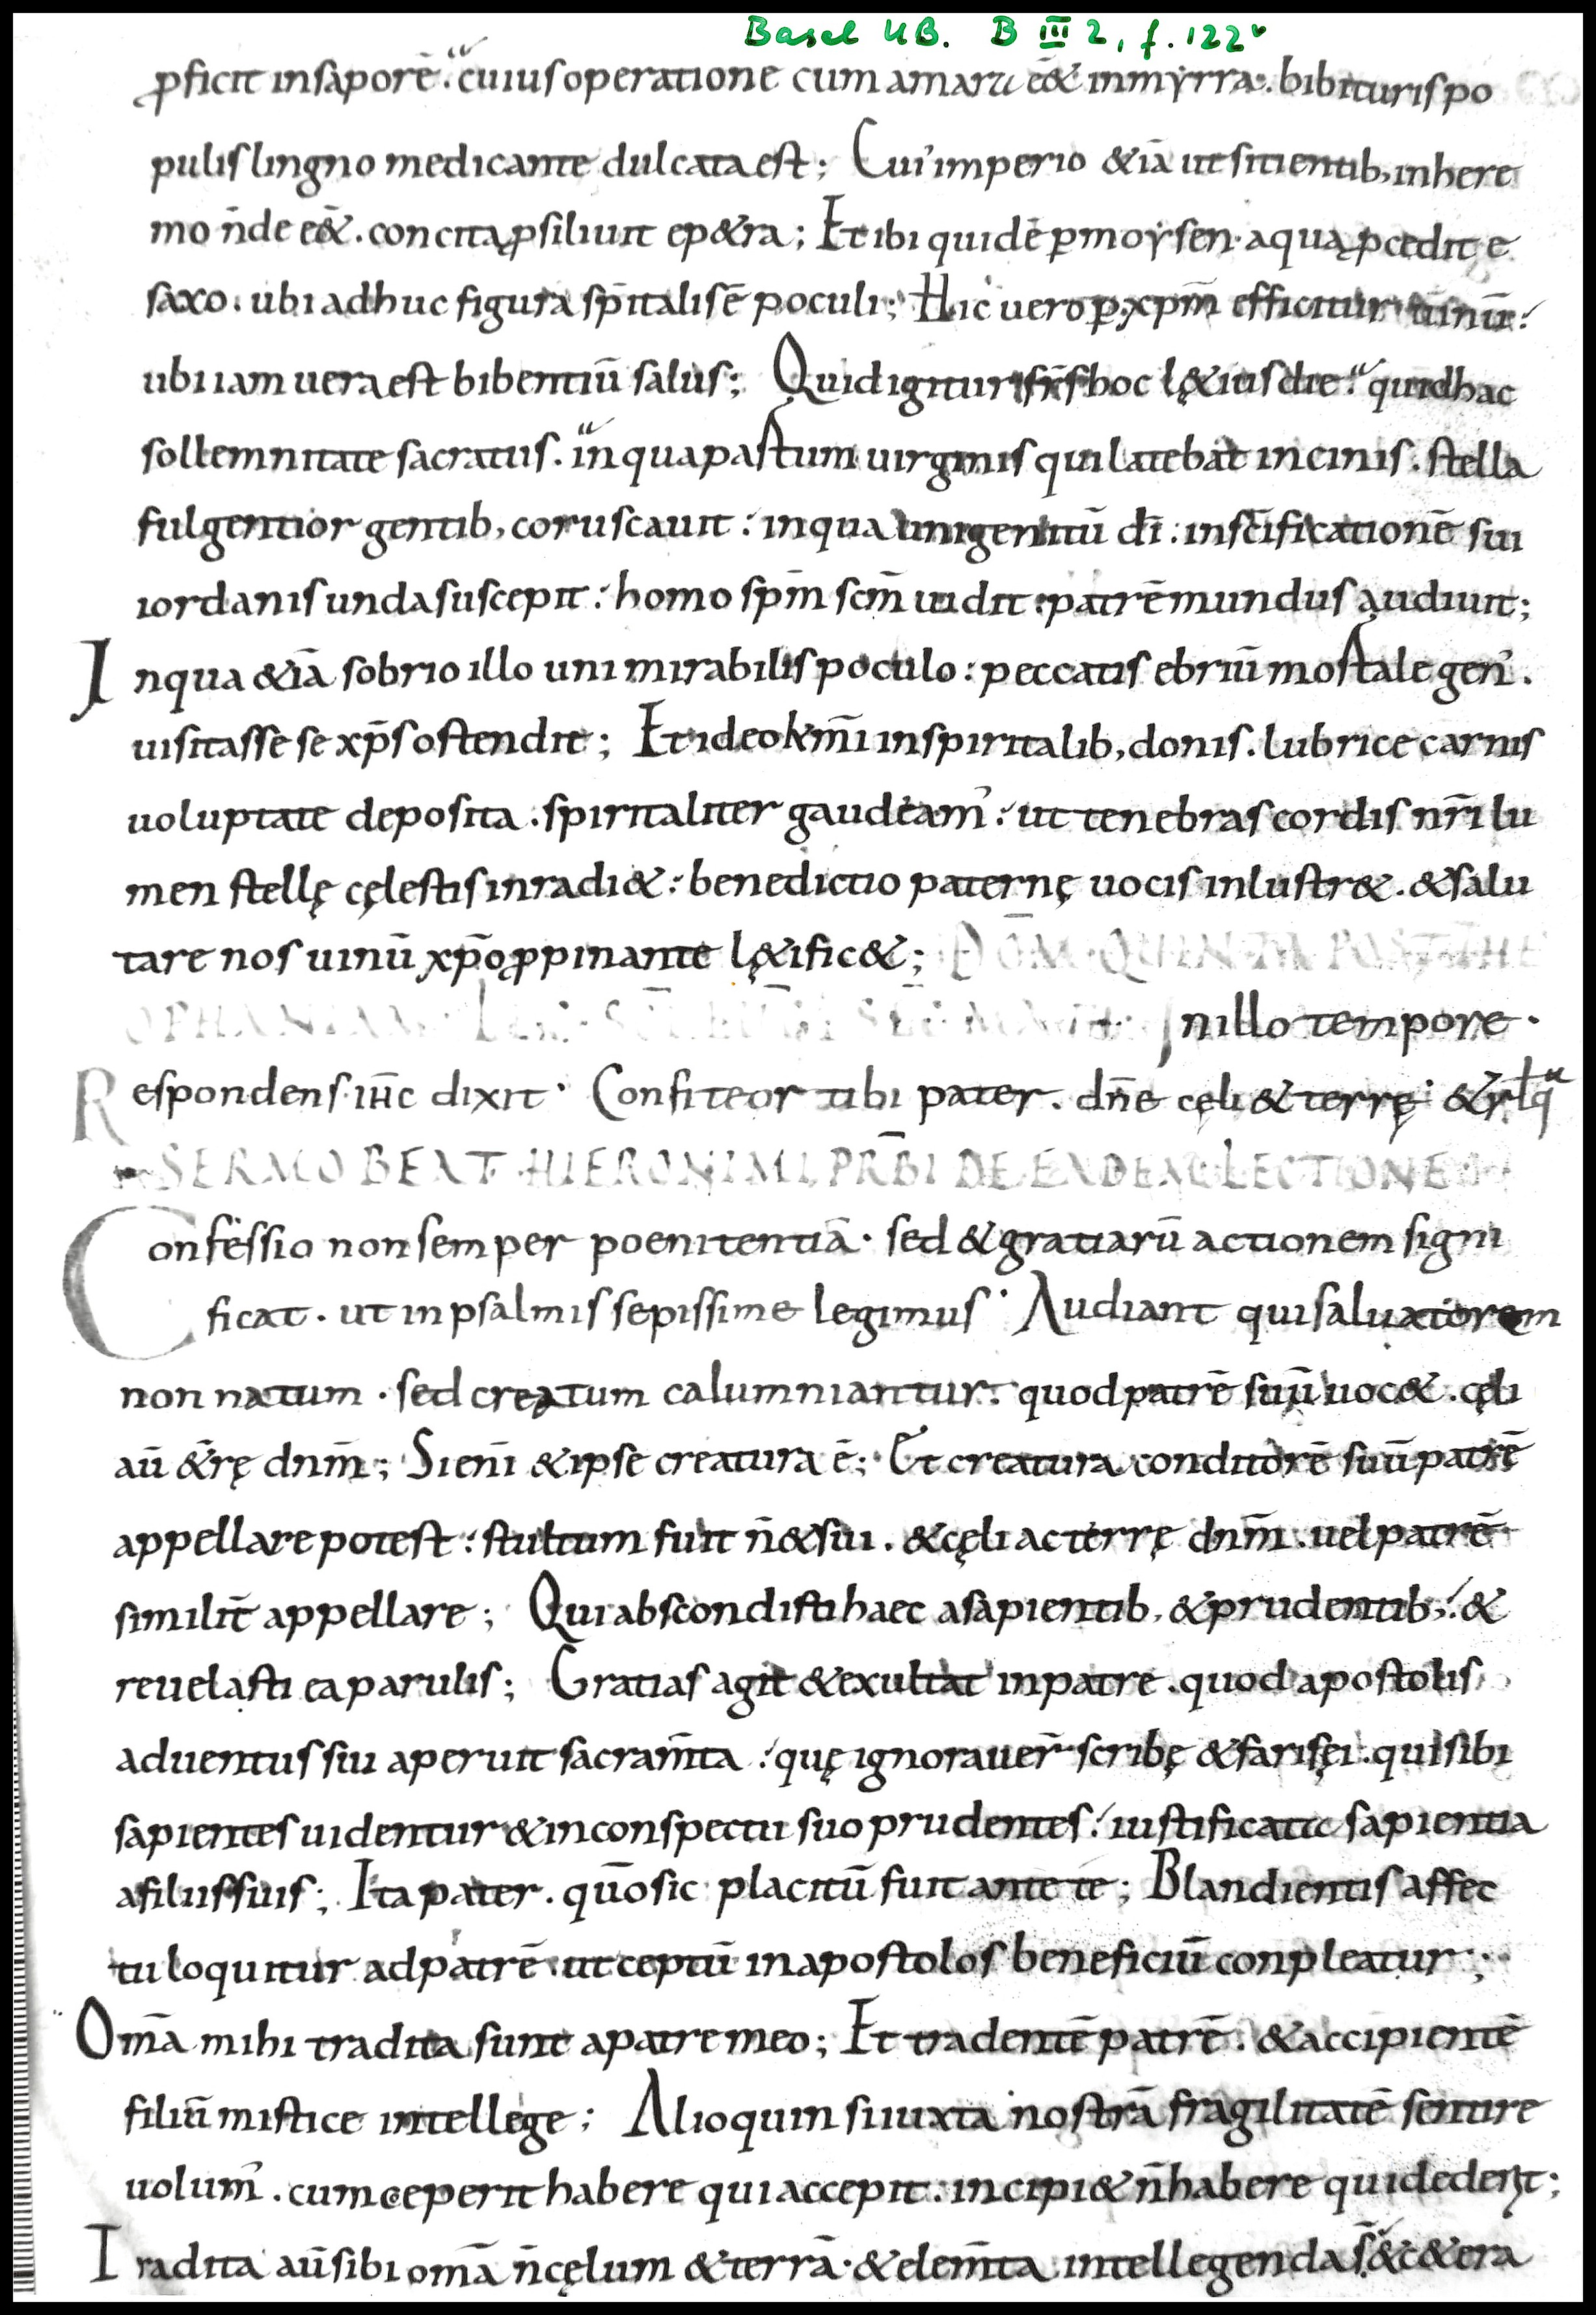 Basel UB. B III 2, f. 122v
ꝓficit insaporē. cuiusoperatione cum amara ēet inmyrra. bibiturispo
pulislingno medicante dulcataest; Cui'imperio &iā utsitientib, inhere
mo n̄de e&. concitaꝓsiliuit ep&ra; Et ibi quidē ꝑmoysen. aquaꝓcedit e
saxo. ubiadhuc figura sp̄italisē poculi; Hic ueroꝑxp̄m efficitur uinū:
ubiiam ueraest bibentiū salus; Quidigitur hoc l&iusdie quidhac
sollemnitate sacratius. inquapastum uirginis quilatebat incinis. stella
fulgentior gentib, coruscauit: inqua unigenitū dī: insc̄ificationē sui
iordanisundasuscepit: homo sp̄m sc̄m uidit: patrēmundus audiuit;
Inqua &iā sobrio illo uni mirabilispoculo: peccatis ebriū mostale gen'.
uisitasse se xp̄s ostendit; Et ideo km̄i inspiritalib, donis. lubrice carnis
uoluptate deposita. spiritaliter gaudeam': ut tenebrascordis nr̄i lu
men stellę cęlestisinradi&: benedictio paternę uocis inlustr&. &salu
tare nos uinū xp̄oꝓpinante lę&ific&; DOM̄. QUINTA POST THE
OPHANIAM. LEC. SC̄I EUG̅I SEC̄. MATH. Inillo tempore.
Respondens. ih̄c dixit. Confiteor tibi pater. dn̄e cęli & terrę. & rlq
SERMO BEAT. HIERONIMI PRB̄I DE EADEM LECTIONE
Confessio nonsemper poenitentiā. sed &gratiarū actionem signi
ficat. ut inpsalmis sepissime legimus. Audiant quisaluatorem
non natum. sed creatum calumniantur. quodpatrē suū uoc&. cęli
aū &r̄rę dnm̄; Sienī &ipse creatura ē; Et creatura conditorē suū patrē
appellarepotest: stultum fuit n̄&sui. &cęli acterrę dnm̄. uelpatrē
similit̄ appellare; Quiabscondistihaec asapientib, &prudentib,: &
reuelasti eaparulis; Gratias agit &exultat inpatre. quod apostolis
aduentus sui aperuit sacram̄ta: quę ignorauer̄ scribę &farisęi. quisibi
sapientes uidentur &inconspectu suo prudentes: iustificatic sapientia
afiliissuis; Itapater. quō sic placitū fuit ante te; Blandientis affec
tu loquitur adpatrē. utceptū inapostolos beneficiū conpleatur;
Om̄a mihi tradita sunt apatre meo; Et tradentē patrē. &accipientē
filiū mistice intellege; Alioquin siiuxta nostrā fragilitatē sentire
uolum'. cumceperit habere quiaccepit: incipi& n̄habere quidederit;
Tradita aū sibi om̄a n̄cęlum &terrā. &elem̄ta intellegenda s̄& c&era